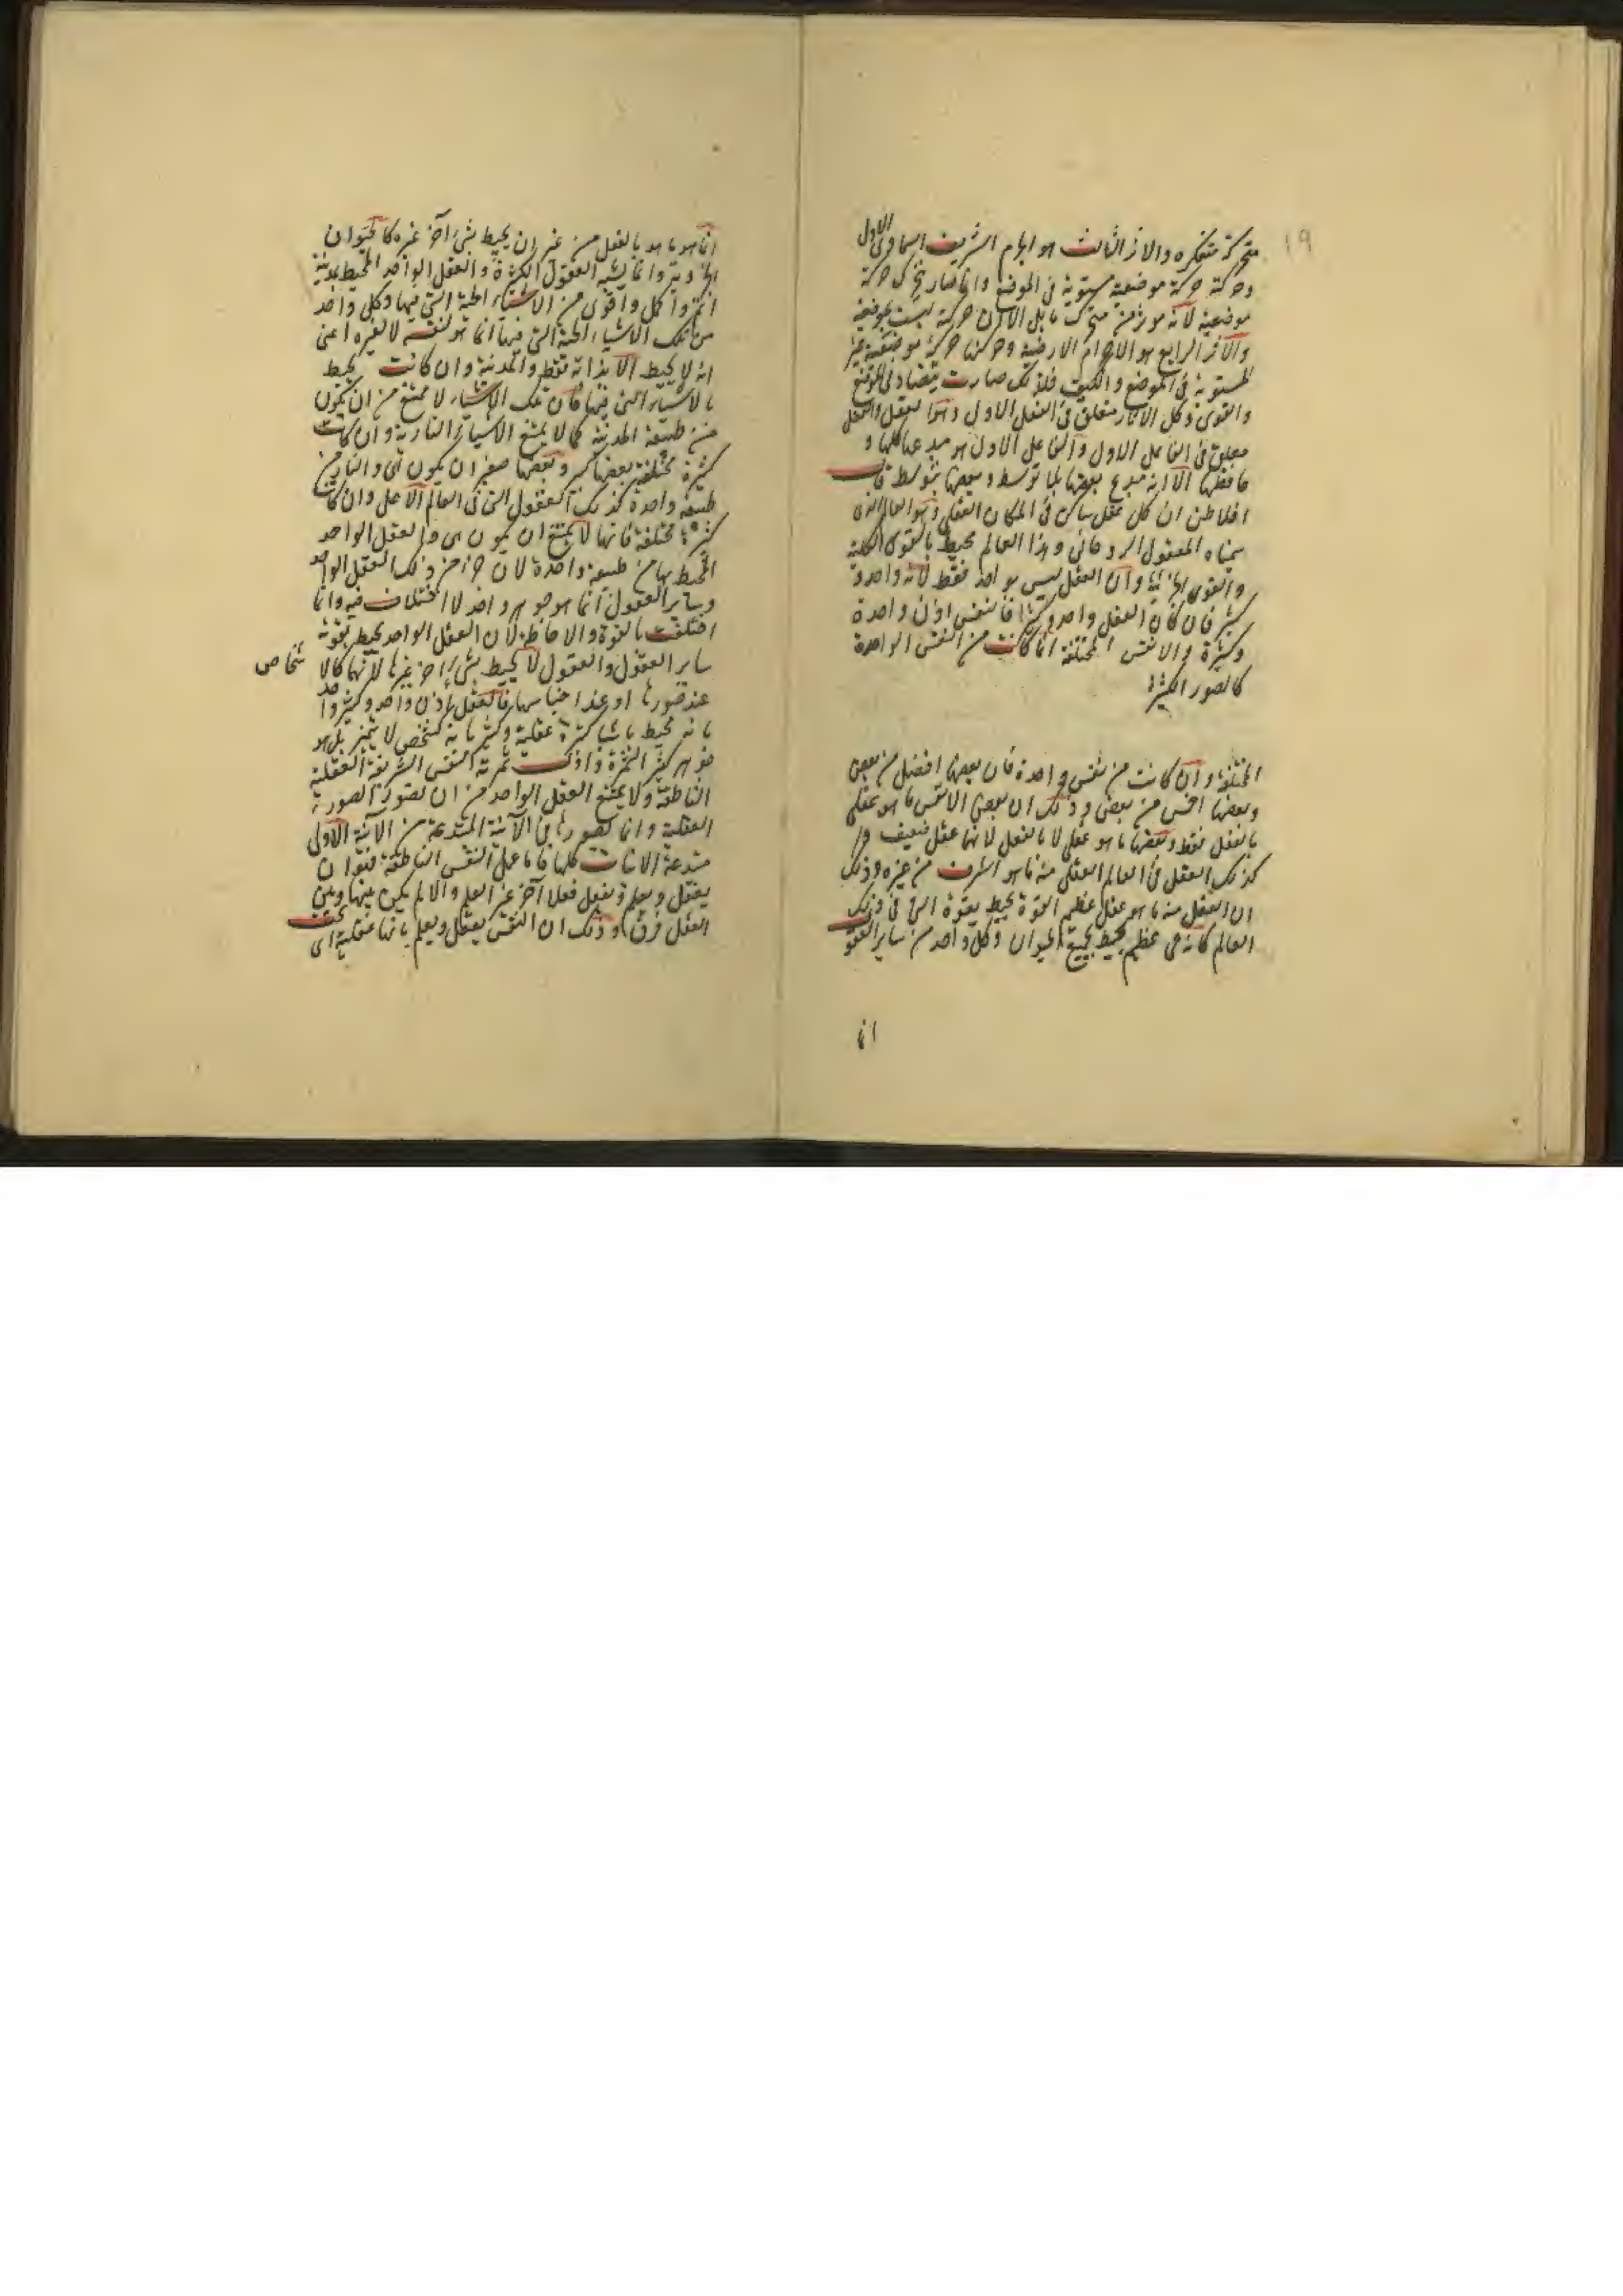 ١٩
متحركة متفكره والاثر الثالث هو الجرم الشريف السماوى الاول
وحركته حركة موضعية مستوية فى الموضع وانما صار يتحرك حركة
موضعية لانه موثر من متحرك ما بل الاثران حركة ليست بموضعية
والاثر الرابع هو الاجرام الارضية وحركتها حركة موضعية غير
مستوية فى الموضع والكيف فلذلك صارت يتضاد فى الموضع
والقوى وكل الاثار متعلق فى العقل الاول وهو العقل والعقل
معلق فى الفاعل الاول والفاعل الاول هو مبدعها كلها و
حافظها الا انه مبدع بعضها بلا توسط وبعضها بتوسط قال
افلاطن ان كل عقل ساكن فى المكان العقلى وهو العالم الذى
سميناه المعقول الروحانى وهذا العالم محيط بالقوى الكلية
والقوى الجزئية وان العقل ليس بواحد فقط لانه واحد و
كثير فان كان العقل واحد وكثيرا فالنفس اذن واحدة
وكثيرة والانفس المختلفة انما كانت من النفس الواحدة
كالصور الكثيرة
المختلفة وان كانت من نفس واحدة فان بعضها افضل من بعض
وبعضها اخس من بعض وذلك ان بعض الانفس ما هو عقلى
بالفعل فقط وبعضها ما هو عقلى لا بالفعل لانها عقل ضعيف و
كذلك العقل فى العالم العقلى منه ما هو اشرف من غيره وذلك
ان العقل منه ما هو عقل عظيم القوة يحيط بقوة التى فى ذلك
العالم كانه حى عظيم محيط بجميع الحيوان وكل واحد من ساير العقو
انما
انما هو ما هو بالفعل من غير ان يحيط بشئ اخر غيره كالحيوان
الجزوية وانما يشبه العقول الكثيرة والعقل الواحد المحيط بمدينة
اتم واكمل واقوى من الاشياء الحية التى فيها وكل واحد
من تلك الاشياء الحية التى فيها انما هو لنفسه لا لغيره اعنى
انه لا يحيط الا بذاته فقط والمدينة وان كانت يحيط
بالاشياء التى فيها فان تلك الاشياء لا تمتنع من ان تكون
من طبيعة المدينة كما لا تمتنع الاشياء النارية وان كانت
كثيرة مختلفة بعضها كبير وبعضها صغير ان يكون هى والنار من
طبيعة واحدة كذلك العقول التى فى العالم الاعلى وان كانت
كثيرة مختلفة فانها لا يمتنع ان يكون هى والعقل الواحد
المحيط بها من طبيعة واحدة لان جزء من ذلك العقل الواحد
وساير العقول انما هو جوهر واحد لا اختلاف فيه وانما
اختلفت بالقوة والاحاطة لان العقل الواحد يحيط بقوته
ساير العقول والعقول لا يحيط بشئ اخر غيرها لانها كالاشخاص
عند صورها او عند اجناسها فالعقل اذن واحد وكثير واحد
بانه محيط باشيا كثيرة عقلية وكثير بانه كشخص لا يتجزى بل هو
جوهر كثير الثمرة واذكت ثمرته النفس الشريفة العقلية
الناطقة ولا يمتنع العقل الواحد من ان تصور الصورة
العقلية وانما تصورها من الآنية المبتدعة من الآنية الاولى
مبتدعة الانيات كلها فاما عمل النفس الناطقة فهو ان
يعقل ويعلم ويفعل فعلا آخر غير العلم والا لم يكن بينها وبين
العقل فرق وذلك ان النفس يعقل ويعلم بانها عقلية اى تحت